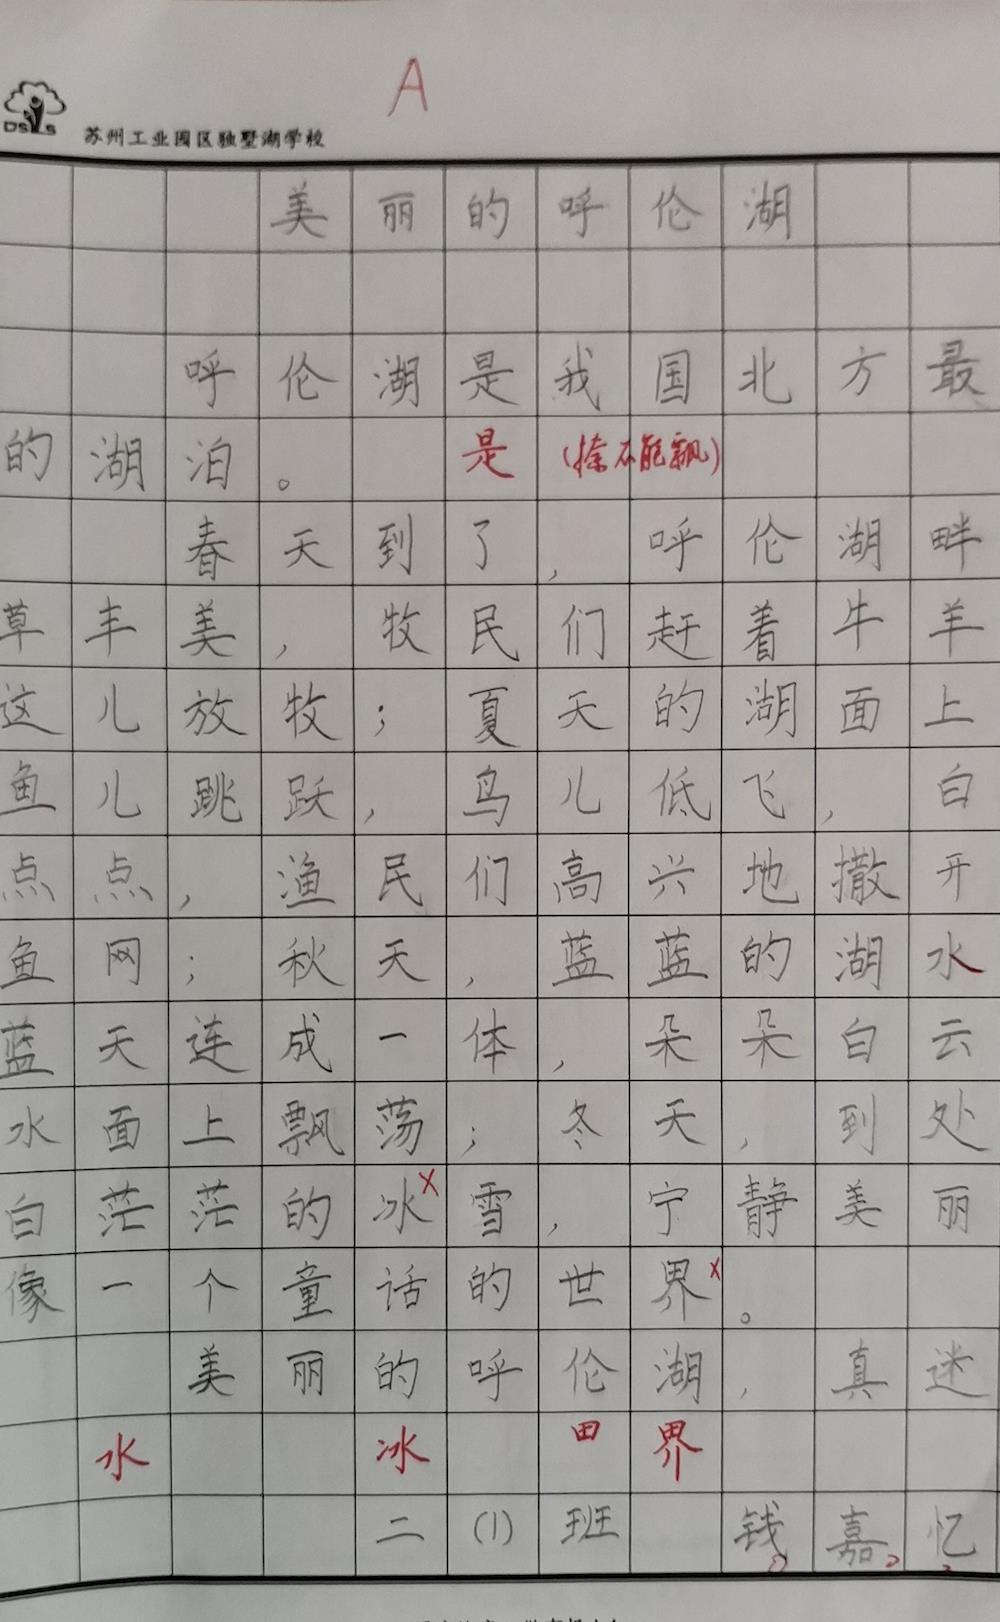 A
DSLS
苏州工业园区独墅湖学校
美丽的呼伦湖
呼伦湖是我国北方最
的湖泊。 是 (捺不能飘)
春天到了,呼伦湖畔
草丰美,牧民们赶着牛羊
这儿放牧;夏天的湖面上
鱼儿跳跃,鸟儿低飞,白
点点,渔民们高兴地撒开
鱼网;秋天,蓝蓝的湖水
蓝天连成一体,朵朵白云
水面上飘荡;冬天,到处
白茫茫的冰雪,宁静美丽
像一个童话的世界。
美丽的呼伦湖,真迷
水 冰 田 界
二(1)班 钱嘉忆